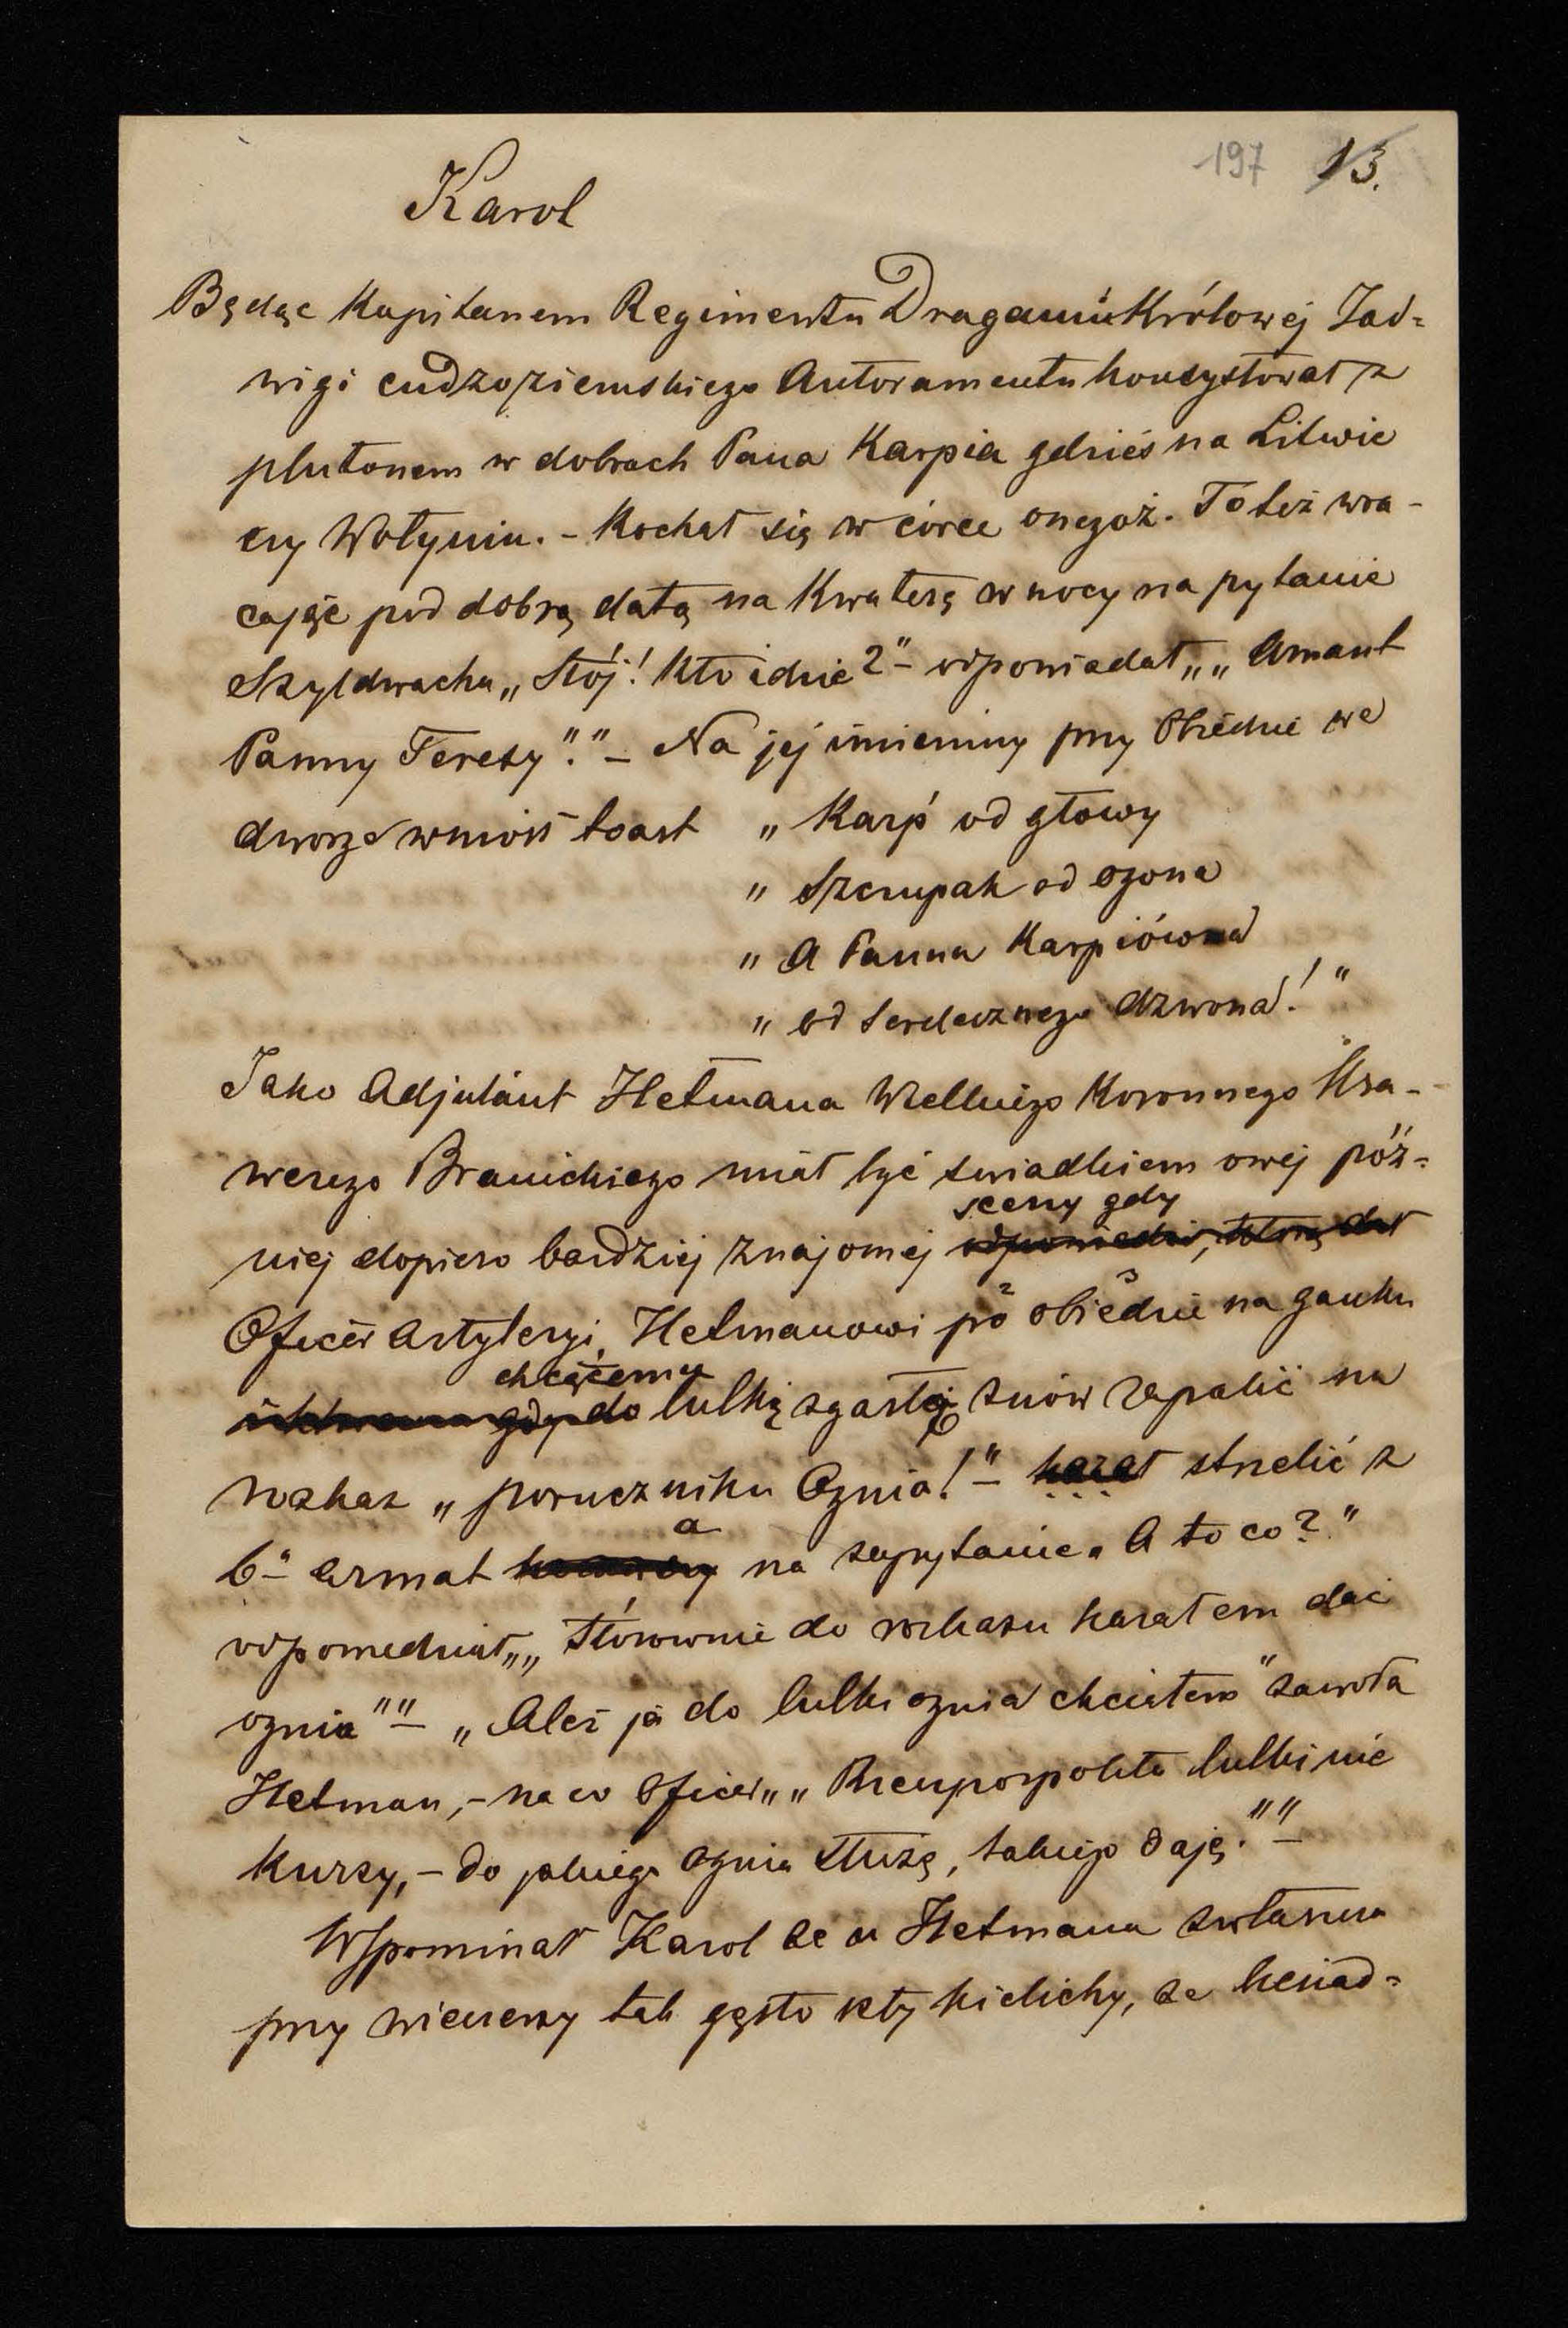 197 13.
Karol
Będąc Kapitanem Regimentu Dragonów Królowej Jad=
wigi cudzoziemskiego Autoramentu konsystował z
plutonem w dobrach Pana Karpia gdzieś na Litwie
czy Wołyniu. - Kochał się w córce onegoż. To też wra-
cając pod dobrą datą na Kwaterę w nocy na pytanie
Szyldwacha „Stój! Kto idzie?" - odpowiadał „„Amant
Panny Teresy"." - Na jej imieniny przy Obiedzie we
dworze wniósł toast „Karp' od głowy
„ Szczupak od ogona
„ A Panna Karpiówna
„ od serdecznego dzwona!"
Jako Adjutant Hetmana Wielkiego Koronnego Ksa-
werego Branickiego miał być świadkiem owej póź=
niej dopiero bardziej znajomej odpowiedzi, którą dał sceny gdy
Oficer Artyleryi, Hetmanowi po obiedzie na ganku
gdy do chcącemu lulkę zgasłą znów zapalić na
rozkaz „poruczniku Ognia!" - kazał strzelić z
6ū armat a na zapytanie „A to co?"
odpowiedział „„Stósownie do rozkazu kazałem dać
ognia"" - „Aleź ja do lulki ognia chciałem" zawoła
Hetman, - na co Oficer „„Rzeczpospolita lulki nie
kurzy, - do jakiego ognia służę, takiego daję."" -
Wspominał Karol że u Hetmana zwłaszcza
przy wieczerzy tak gęsto szły kielichy, że biesiad=